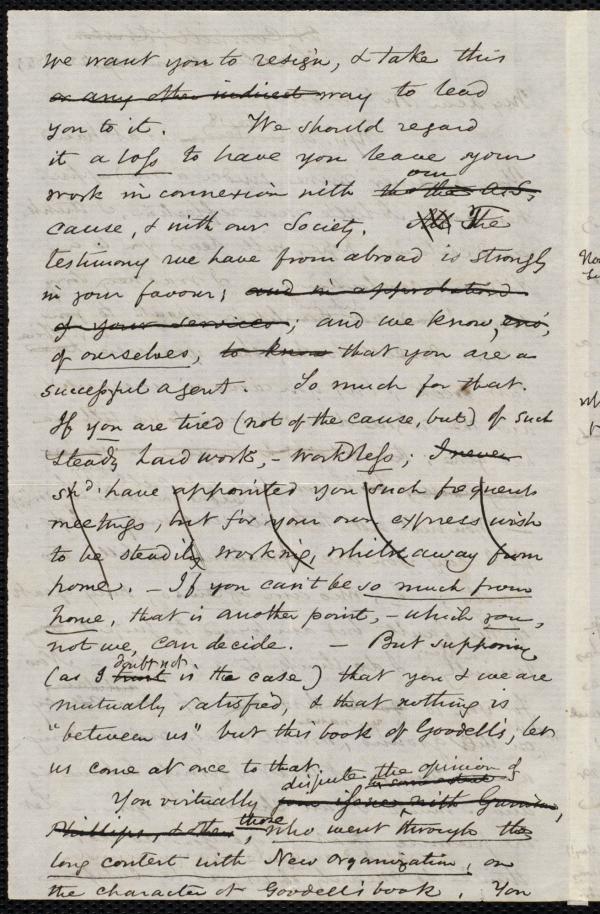 we want you to resign, & take this
or any other indirect way to lead
you to it. We should regard
it a loss to have you leave your
work in connexion with the other A.S. our
cause, & with our Society. The
testimony we have from abroad is strongly
in your favour; and in approbation
of your services; and we know,
of ourselves, to know that you are a
successful agent. So much for that.
If you are tired (not of the cause, but) of such
steady hard work, – work less; I never
shd. have appointed you such frequent
meetings, but for your own express wish
to be steadily working, while away from
home. – If you can't be so much from
home, that is another point, – which you,
not we, can decide. – But supposing
(as I trust doubt not is the case) that you & we are
mutually satisfied, & that nothing is
"between us" but this book of Goodell's, let
us come at once to that.
You virtually dispute the opinion of
you issue with Garrison,
Phillips, & other, those who went through the
long contest with New Organization, on
the character of Goodell's book. You